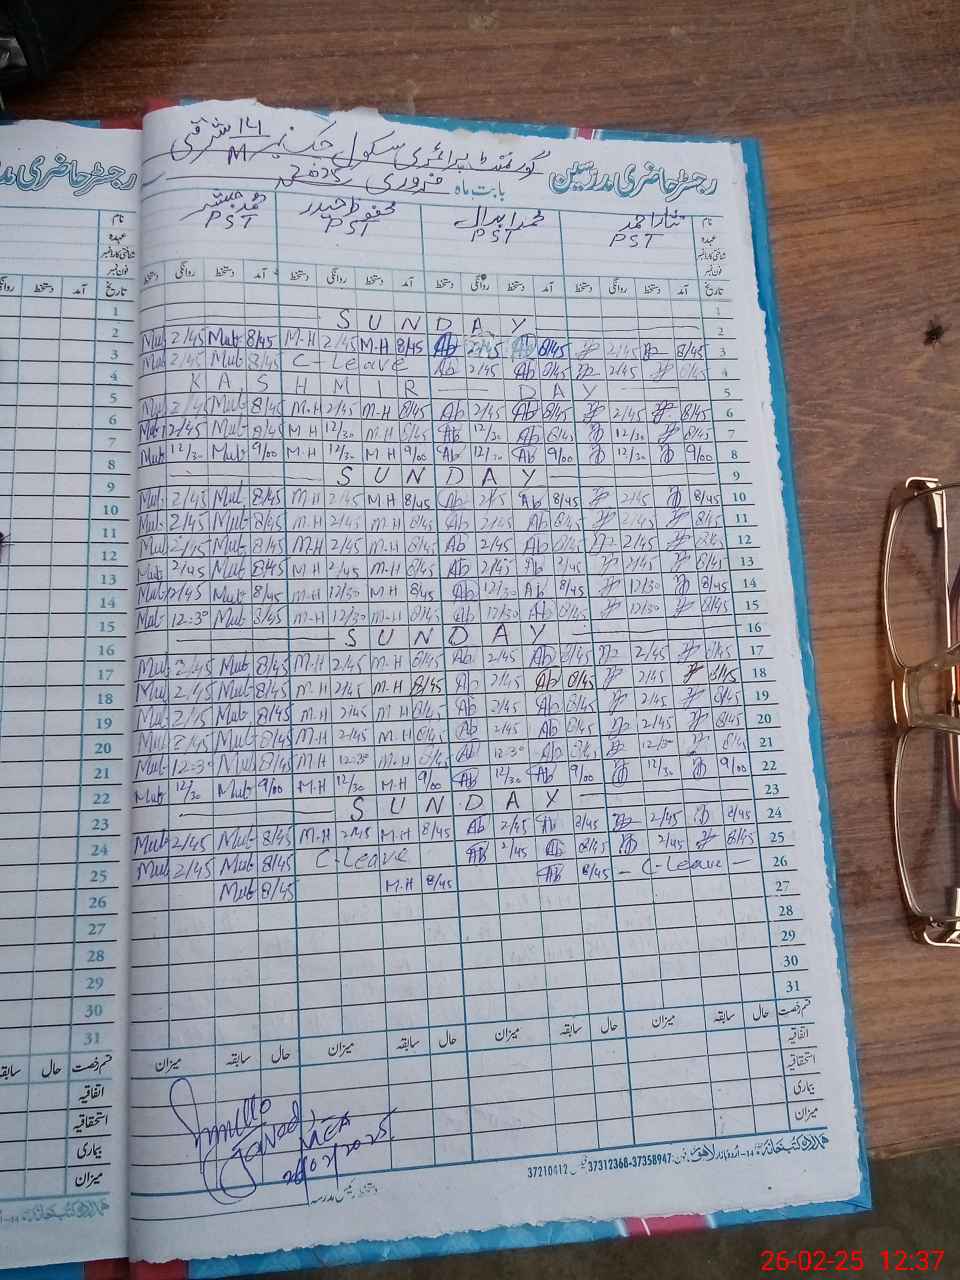 رجسٹر حاضری مدرسین
گورنمنٹ پرائمری سکول چک نمبر 141/M شرقی
بابت ماہ فروری 2025
نام نثار احمد محمد ابدال محفوظ حیدر محمد مبشر
عہدہ PST PST PST PST
شناختی کارڈ نمبر
فون نمبر
تاریخ آمد دستخط روانگی دستخط آمد دستخط روانگی دستخط آمد دستخط روانگی دستخط آمد دستخط روانگی دستخط
1
SUNDAY 2
Mub 2/45 Mub 8/45 M-H 2/45 M-H 8/45 Ab 2/45 Ab 8/45 2/45 8/45 3
Mub 2/45 Mub 8/45 C-Leave Ab 2/45 Ab 8/45 2/45 8/45 4
KASHMIR DAY 5
Mub 2/45 Mub 8/45 M-H 2/45 M-H 8/45 Ab 2/45 Ab 8/45 2/45 8/45 6
Mub 12/45 Mub 8/45 M-H 12/30 M-H 8/45 Ab 12/30 Ab 8/45 12/30 8/45 7
Mub 12/30 Mub 9/00 M-H 12/30 M-H 9/00 Ab 12/30 Ab 9/00 12/30 9/00 8
SUNDAY 9
Mub 2/45 Mub 8/45 M-H 2/45 M-H 8/45 Ab 2/45 Ab 8/45 2/45 8/45 10
Mub 2/45 Mub 8/45 M-H 2/45 M-H 8/45 Ab 2/45 Ab 8/45 2/45 8/45 11
Mub 2/45 Mub 8/45 M-H 2/45 M-H 8/45 Ab 2/45 Ab 8/45 2/45 8/45 12
Mub 2/45 Mub 8/45 M-H 2/45 M-H 8/45 Ab 2/45 Ab 8/45 2/45 8/45 13
Mub 12/45 Mub 8/45 M-H 12/30 M-H 8/45 Ab 12/30 Ab 8/45 12/30 8/45 14
Mub 12:30 Mub 8/45 M-H 12/30 M-H 8/45 Ab 12/30 Ab 8/45 12/30 8/45 15
SUNDAY 16
Mub 2/45 Mub 8/45 M-H 2/45 M-H 8/45 Ab 2/45 Ab 8/45 2/45 8/45 17
Mub 2/45 Mub 8/45 M-H 2/45 M-H 8/45 Ab 2/45 Ab 8/45 2/45 8/45 18
Mub 2/45 Mub 8/45 M-H 2/45 M-H 8/45 Ab 2/45 Ab 8/45 2/45 8/45 19
Mub 2/45 Mub 8/45 M-H 2/45 M-H 8/45 Ab 2/45 Ab 8/45 2/45 8/45 20
Mub 12:30 Mub 8/45 M-H 12:30 M-H 8/45 Ab 12:30 Ab 8/45 12/30 8/45 21
Mub 12/30 Mub 9/00 M-H 12/30 M-H 9/00 Ab 12/30 Ab 9/00 12/30 9/00 22
SUNDAY 23
Mub 2/45 Mub 8/45 M-H 2/45 M-H 8/45 Ab 2/45 Ab 8/45 2/45 8/45 24
Mub 2/45 Mub 8/45 C-Leave Ab 2/45 Ab 8/45 2/45 8/45 25
Mub 8/45 M-H 8/45 Ab 8/45 C-Leave 26
27
28
29
30
31
قسم رخصت حال سابقہ میزان حال سابقہ میزان حال سابقہ میزان حال سابقہ میزان
اتفاقیہ
استحقاقیہ
بیماری
میزان
MEA
26/02/2025
دستخط رئیس مدرسہ
ہمدرد کتب خانہ 14-اردو بازار لاہور فون: 37358947-37312368 فیکس 37210412
رجسٹر حاضری
نام
عہدہ
شناختی کارڈ نمبر
فون نمبر
تاریخ آمد دستخط
1
2
3
4
5
6
7
8
9
10
11
12
13
14
15
16
17
18
19
20
21
22
23
24
25
26
27
28
29
30
31
قسم رخصت حال سابقہ
اتفاقیہ
استحقاقیہ
بیماری
میزان
ہمدرد کتب خانہ
26-02-25 12:37